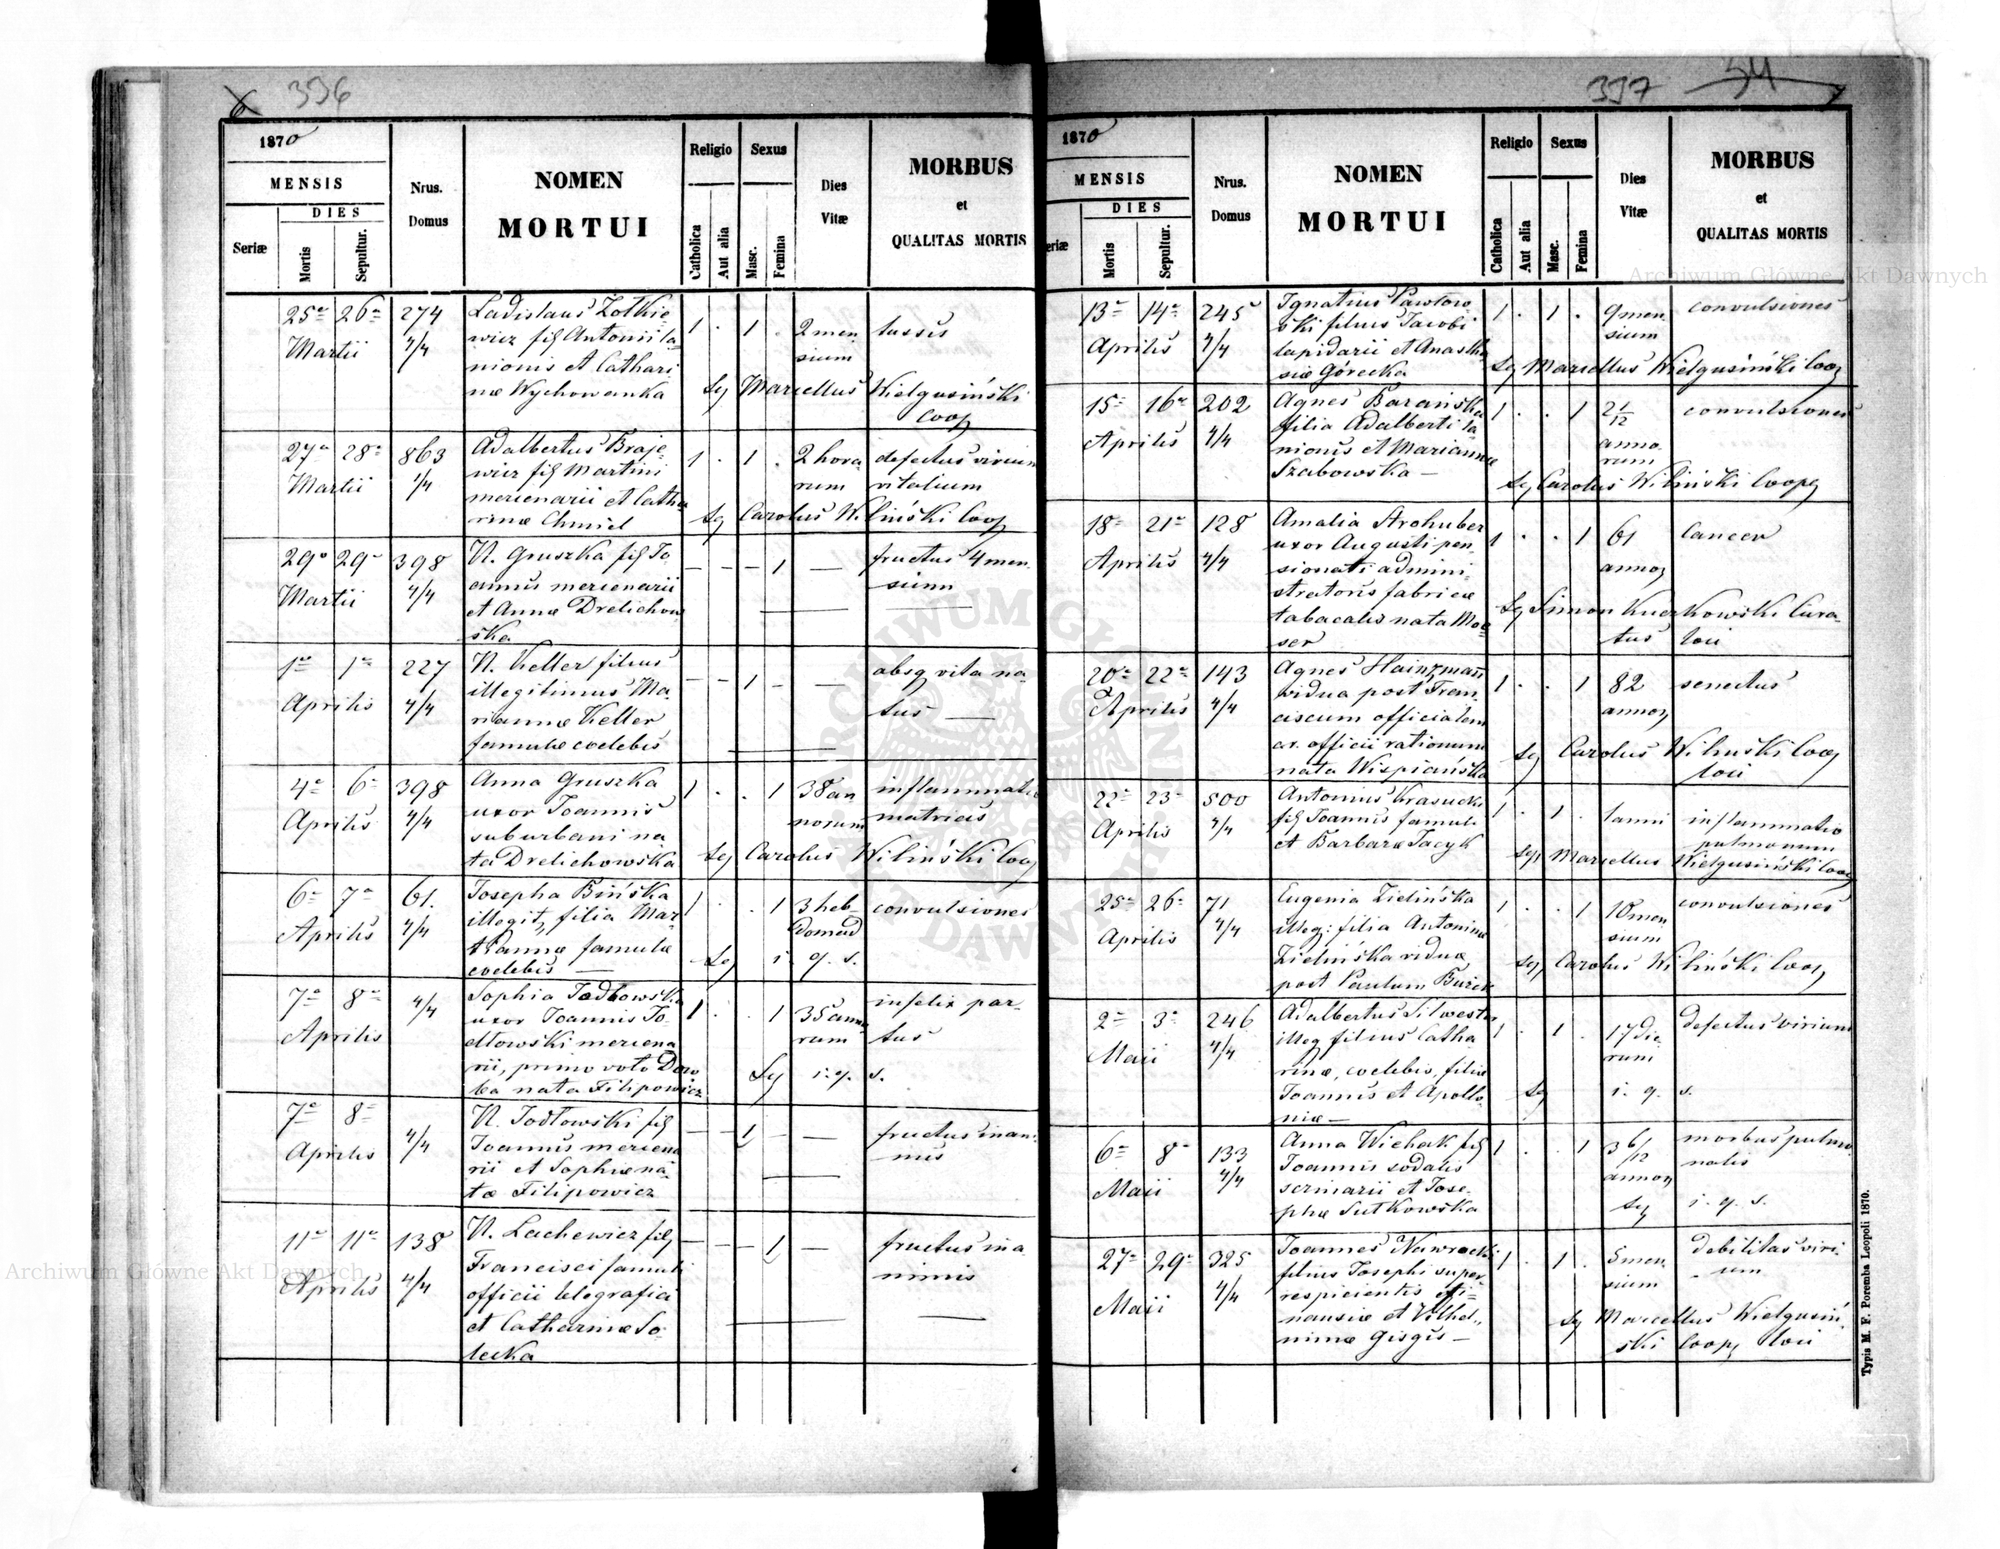 6 396
1870
MENSIS
DIES
Seriæ
Mortis
Sepultur.
Nrus.
Domus
NOMEN
MORTUI
Religio
Catholica
Aut alia
Sexus
Masc.
Femina
Dies
Vitæ
MORBUS
et
QUALITAS MORTIS
25a 26a 274
Martii 4/4
Ladislaus Zotkie
wicz filg Antonii la
nionis et Cathari
næ Wychowanka
1 . 1 . 2 men
sium
tussis
Sg Marcellus Wielgusiński
Coop
27a 28a 863
Martii 1/4
Adalbertus Braje
wicz filg Martini
mercenarii et Catha
rinæ Chmiel
1 . 1 . 2 hora
rum
defectus virium
vitalium
Sg Carolus Wiliński Coop
29a 29a 398
Martii 4/4
N. Gruszka filg Jo
annis mercenarii
et Annæ Drelichow
ska
– – – 1 –
fructus 4 men
sium
1a 1a 227
Aprilis 4/4
N. Keller filius
illegitimus Ma
riannæ Keller
famulæ coelebis
– – 1 – –
absq vita na
tus
4a 6a 398
Aprilis 4/4
Anna Gruszka
uxor Joannis
suburbani na
ta Drelichowska
1 . . 1 38 an
norum
inflammatio
matricis
Sg Carolus Wiliński Coop
6a 7a 61.
Aprilis 4/4
Josepha Bińska
illegit, filia Mar
iannæ famulæ
coelebis –
1 . . 1 3 heb
domad
convulsiones
Sg i. q. s.
7a 8a
Aprilis 4/4
Sophia Jodłowska
uxor Joannis Jo
dłowski mercena
rii, primo voto
nata Filipowicz
1 . . 1 35 anno
rum
infelix par
tus
Sg i. q. s.
7a 8a
Aprilis 4/4
N. Jodłowski filg
Joannis mercena
rii et Sophiæ na
tæ Filipowicz
– – 1 – –
fructus inani
mis
11a 11a 138
Aprilis 4/4
N. Lachewicz filg
Francisci famuli
officii telegrafici
et Catharinæ So
lecka
– – – 1 –
fructus ina
nimis
397 54 7
1870
MENSIS
DIES
eriæ
Mortis
Sepultur.
Nrus.
Domus
NOMEN
MORTUI
Religio
Catholica
Aut alia
Sexus
Masc.
Femina
Dies
Vitæ
MORBUS
et
QUALITAS MORTIS
13a 14a 245
Aprilis 4/4
Ignatius Pawłow
ski filius Jacobi
lapidarii et Anasta
siæ Górecka
1 . 1 . 9 men
sium
convulsiones
Sg Marcellus Wielgusiński Coop
15a 16a 202
Aprilis 4/4
Agnes Barańska
filia Adalberti la
nionis et Mariannæ
Szabowska –
1 . . 1 2 1/12
anno
rum
convulsiones
Sg Carolus Wiliński Coop
18a 21a 128
Aprilis 4/4
Amalia Strohuber
uxor Augusti pen
sionati admini
stratoris fabricæ
tabacalis nata Moe
ser
1 . . 1 61
annor
cancer
Sg Simon Kuczkowski Cura
tus loci
20a 22a 143
Aprilis 4/4
Agnes Hainzmann
vidua post Fran
ciscum officialem
cr. officii rationum
nata Wispiańska
1 . . 1 82
annor
senectus
Sg Carolus Wiliński Coop
loci
22a 23a 500
Aprilis 4/4
Antonius Krasucki
filg Joannis famuli
et Barbara Jacyk
1 . 1 . 1 anni
inflammatio
pulmonum
Sg Marcellus Wielgusiński Coop
25a 26a 71
Aprilis 4/4
Eugenia Zielińska
illeg: filia Antoninæ
Zielińska viduæ
post Paulum
1 . . 1 10 men
sium
convulsiones
Sg Carolus Wiliński Coop
2a 3a 246
Maii 4/4
Adalbertus Silvester
illeg filius Catha
rinæ, coelebis, filiæ
Joannis et Apollo
niæ –
1 . 1 . 17 die
rum
defectus virium
Sg i. q. s.
6a 8a 133
Maii 4/4
Anna Wichak filg
Joannis sodalis
scriniarii et Jose
phæ Sutkowska
1 . . 1 3 6/12
annor
morbus pulmo
nalis
Sg i. q. s.
27a 29a 325
Maii 4/4
Joannes Nawrocki
filius Josephi super
respicientis fi
nansiæ et Vilhel
minæ Gisgis –
1 . 1 . 5 men
sium
debilitas viri
um
Sg Marcellus Wielgusiń
ski Coop loci
Typis M. F. Poremba Leopoli 1870.
Archiwum Główne Akt Dawnych
Archiwum Główne Akt Dawnych
ARCHIWUM GŁÓWNE AKT DAWNYCH